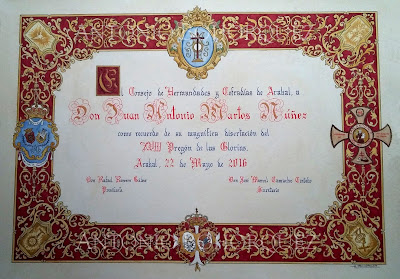 El Consejo de Hermandades y Cofradías de Arahal, a
Don Juan Antonio Martos Núñez
como recuerdo de su magnífica disertación del
XVIII Pregón de las Glorias.
Arahal, 22 de Mayo de 2016
Don Rafael
Presidente
Don José Manuel
Secretario